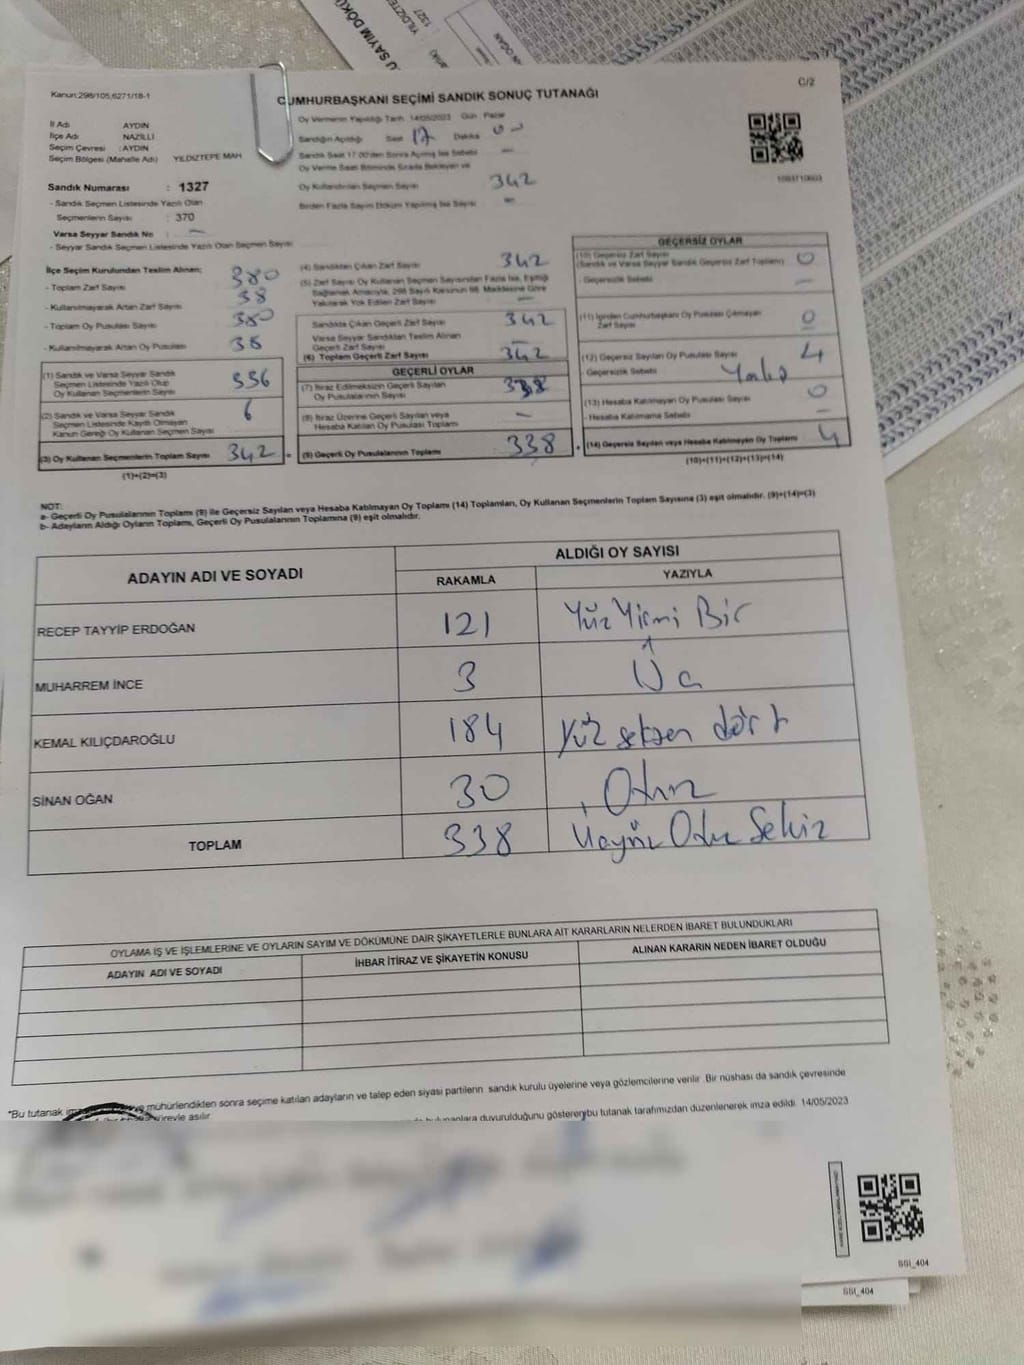 U SAYIM DÖKÜ
YILDIZTE
1327
N DOĞAN
Kanun:298/105,6271/18-1
C/2
CUMHURBAŞKANI SEÇİMİ SANDIK SONUÇ TUTANAĞI
İl Adı AYDIN
İlçe Adı NAZİLLİ
Seçim Çevresi : AYDIN
Seçim Bölgesi (Mahalle Adı) YILDIZTEPE MAH
Sandık Numarası : 1327
- Sandık Seçmen Listesinde Yazılı Olan
Seçmenlerin Sayısı : 370
Varsa Seyyar Sandık No : -
- Seyyar Sandık Seçmen Listesinde Yazılı Olan Seçmen Sayısı
Oy Vermenin Yapıldığı Tarih 14/05/2023 Gün Pazar
Sandığın Açıldığı Saat 17 Dakika
Sandık Saat 17.00'den Sonra Açılmış İse Sebebi -
Oy Verme Saati Bitiminde Sırada Bekleyen ve
Oy Kullandırılan Seçmen Sayısı 342
Birden Fazla Sayım Döküm Yapılmış İse Sayısı -
1093710603
İlçe Seçim Kurulundan Teslim Alınan;
- Toplam Zarf Sayısı 380
- Kullanılmayarak Artan Zarf Sayısı 38
- Toplam Oy Pusulası Sayısı 380
- Kullanılmayarak Artan Oy Pusulası 38
(1) Sandık ve Varsa Seyyar Sandık
Seçmen Listesinde Yazılı Olup
Oy Kullanan Seçmenlerin Sayısı 336
(2) Sandık ve Varsa Seyyar Sandık
Seçmen Listesinde Kayıtlı Olmayan
Kanun Gereği Oy Kullanan Seçmen Sayısı 6
(3) Oy Kullanan Seçmenlerin Toplam Sayısı 342 =
(1)+(2)=(3)
(4) Sandıktan Çıkan Zarf Sayısı 342
(5) Zarf Sayısı Oy Kullanan Seçmen Sayısından Fazla İse, Eşitliği
Sağlamak Amacıyla, 298 Sayılı Kanunun 98. Maddesine Göre
Yakılarak Yok Edilen Zarf Sayısı -
Sandıkta Çıkan Geçerli Zarf Sayısı 342
Varsa Seyyar Sandıktan Teslim Alınan
Geçerli Zarf Sayısı -
(6) Toplam Geçerli Zarf Sayısı 342
GEÇERLİ OYLAR
(7) İtiraz Edilmeksizin Geçerli Sayılan
Oy Pusulasının Sayısı 338
(8) İtiraz Üzerine Geçerli Sayılan veya
Hesaba Katılan Oy Pusulası Toplamı -
(9) Geçerli Oy Pusulalarının Toplamı 338
GEÇERSİZ OYLAR
(10) Geçersiz Zarf Sayısı
(Sandık ve Varsa Seyyar Sandık Geçersiz Zarf Toplamı) 0
- Geçersizlik Sebebi -
(11) İçinden Cumhurbaşkanı Oy Pusulası Çıkmayan
Zarf Sayısı 0
(12) Geçersiz Sayılan Oy Pusulası Sayısı 4
- Geçersizlik Sebebi
(13) Hesaba Katılmayan Oy Pusulası Sayısı 0
- Hesaba Katılmama Sebebi -
(14) Geçersiz Sayılan veya Hesaba Katılmayan Oy Toplamı 4
(10)+(11)+(12)+(13)=(14)
NOT:
a- Geçerli Oy Pusulalarının Toplamı (9) ile Geçersiz Sayılan veya Hesaba Katılmayan Oy Toplamı (14) Toplamları, Oy Kullanan Seçmenlerin Toplam Sayısına (3) eşit olmalıdır. (9)+(14)=(3)
b- Adayların Aldığı Oyların Toplamı, Geçerli Oy Pusulalarının Toplamına (9) eşit olmalıdır.
ADAYIN ADI VE SOYADI
ALDIĞI OY SAYISI
RAKAMLA YAZIYLA
RECEP TAYYİP ERDOĞAN 121 Yüz Yirmi Bir
MUHARREM İNCE 3 Üç
KEMAL KILIÇDAROĞLU 184 Yüz seksen dört
SİNAN OĞAN 30 Otuz
TOPLAM 338 Üçyüz Otuz Sekiz
OYLAMA İŞ VE İŞLEMLERİNE VE OYLARIN SAYIM VE DÖKÜMÜNE DAİR ŞİKAYETLERLE BUNLARA AİT KARARLARIN NELERDEN İBARET BULUNDUKLARI
ADAYIN ADI VE SOYADI İHBAR İTİRAZ VE ŞİKAYETİN KONUSU ALINAN KARARIN NEDEN İBARET OLDUĞU
*Bu tutanak mühürlendikten sonra seçime katılan adayların ve talep eden siyasi partilerin sandık kurulu üyelerine veya gözlemcilerine verilir. Bir nüshası da sandık çevresinde
süreyle asılır.
duyurulduğunu gösteren bu tutanak tarafımızdan düzenlenerek imza edildi. 14/05/2023
SSI_404
SSI_404